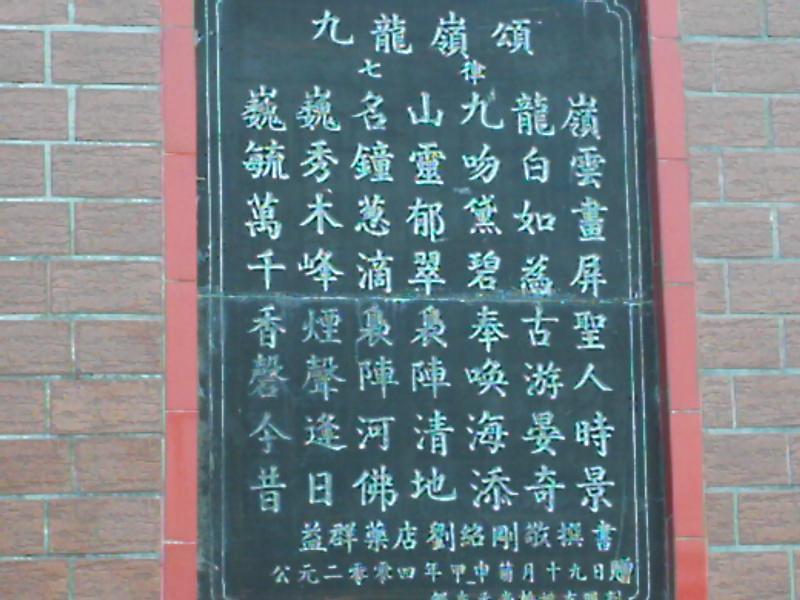 九龍嶺頌
七律
巍巍名山九龍嶺
毓秀鐘靈吻白雲
萬木葱郁黛如畫
千峰滴翠碧為屏
香煙裊裊奉古聖
磬聲陣陣喚游人
今逢河清海晏時
昔日佛地添奇景
益群藥店劉紹剛敬撰書
公元二零零四年甲申月十九日贈